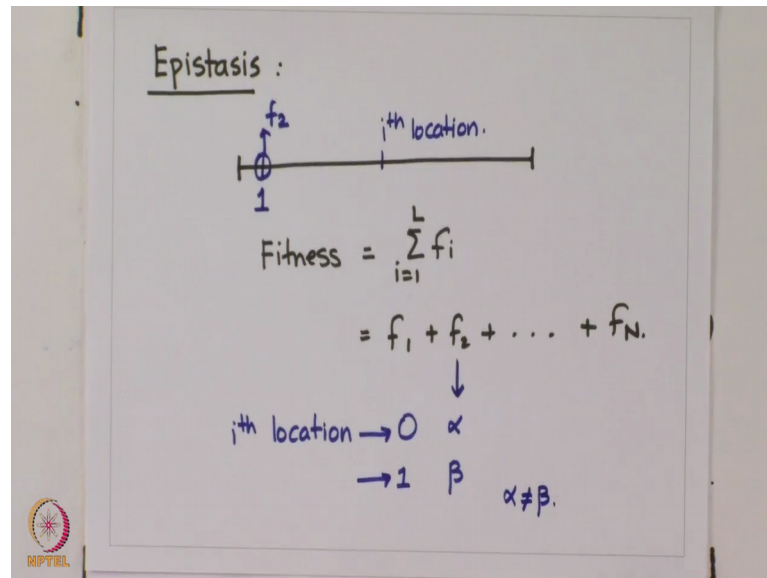 Epistasis :
f₂
iᵗʰ location.
1
Fitness = Σ_{i=1}^{L} fi
= f₁ + f₂ + . . . + f_N.
↓
iᵗʰ location → 0 α
→ 1 β α ≠ β.
NPTEL